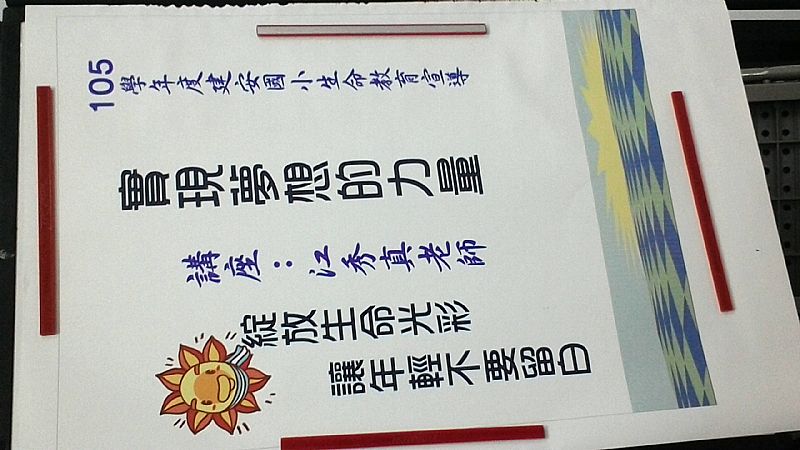 105學年度建安國小生命教育宣導
實現夢想的力量
講座：江秀真老師
綻放生命光彩
讓年輕不要留白